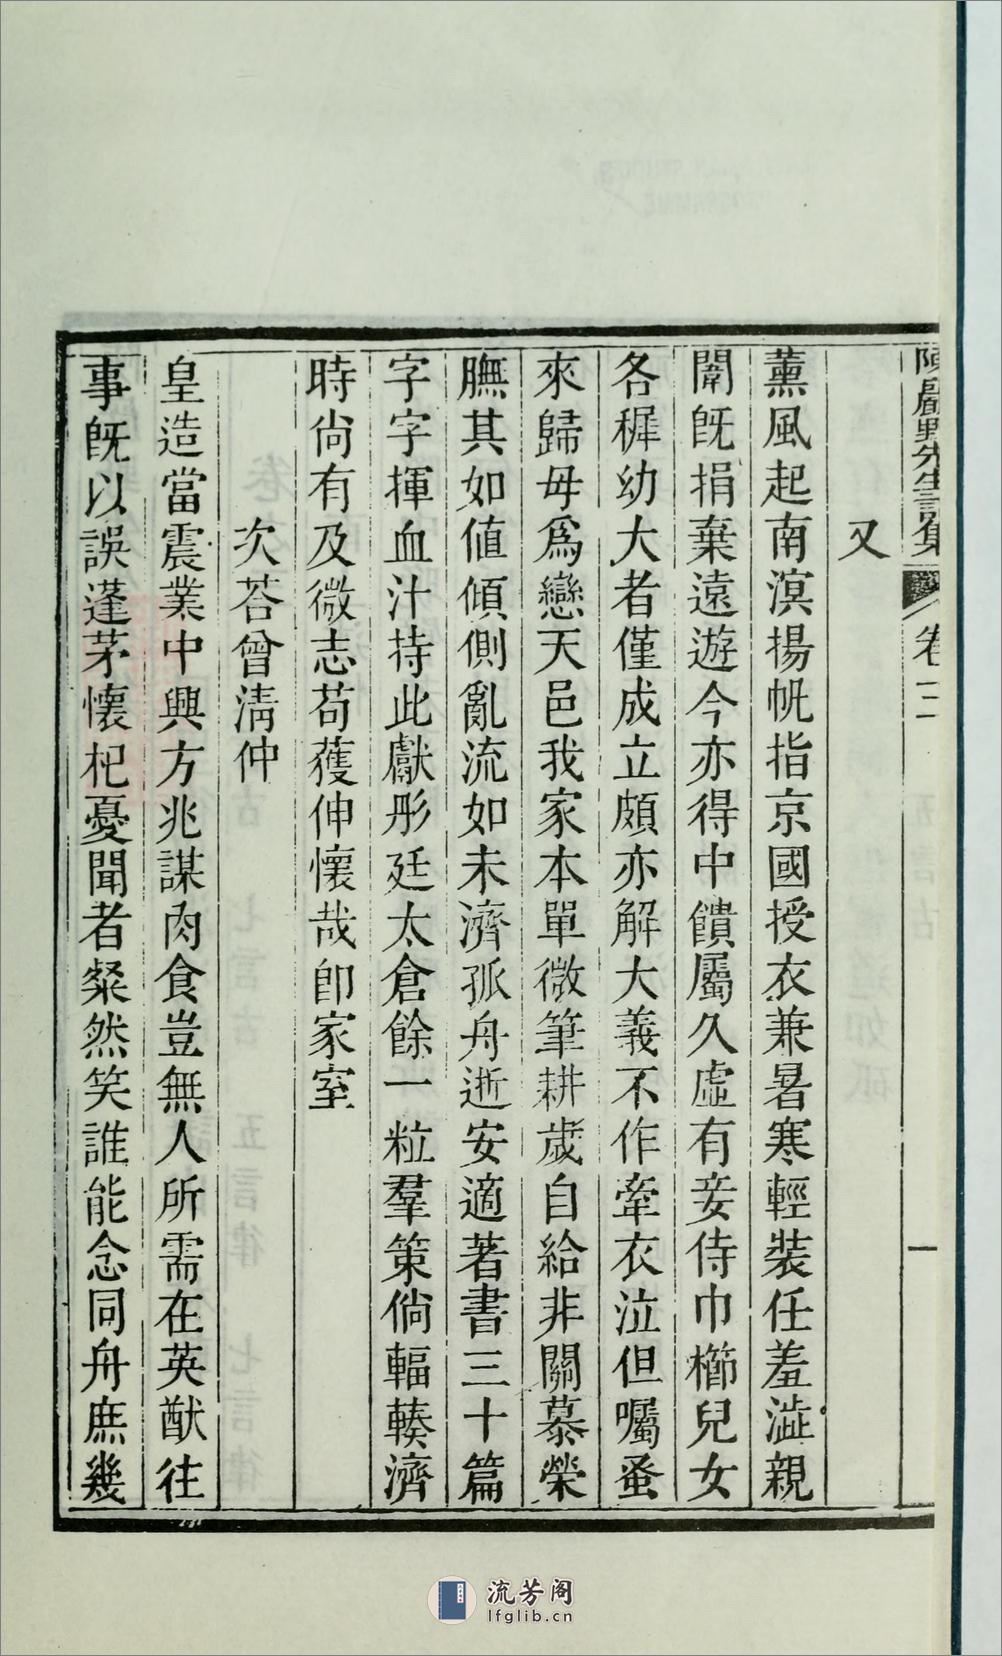 陳巖野先生詩集 卷二 一
又
薰風起南溟揚帆指京國授衣兼暑寒輕裝任羞澁親
闈旣捐棄遠遊今亦得中饋屬久虛有妾侍巾櫛兒女
各穉幼大者僅成立頗亦解大義不作牽衣泣但囑蚤
來歸毋爲戀天邑我家本單微筆耕歲自給非關慕榮
膴其如値傾側亂流如未濟孤舟逝安適著書三十篇
字字揮血汁持此獻彤廷太倉餘一粒羣策倘輻輳濟
時尙有及微志苟獲伸懷哉卽家室
次荅曾淸仲
皇造當震業中興方兆謀肉食豈無人所需在英猷往
事旣以誤蓬茅懷杞憂聞者粲然笑誰能念同舟庶幾
流芳阁
lfglib.cn